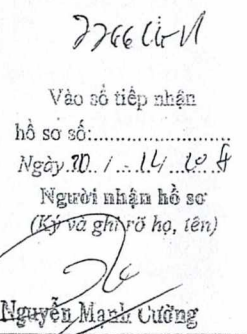 Vào sổ tiếp nhận
hồ sơ số:........................
Ngày 20 / 11 /
Người nhận hồ sơ
(Ký và ghi rõ họ, tên)
Nguyễn Mạnh Cường